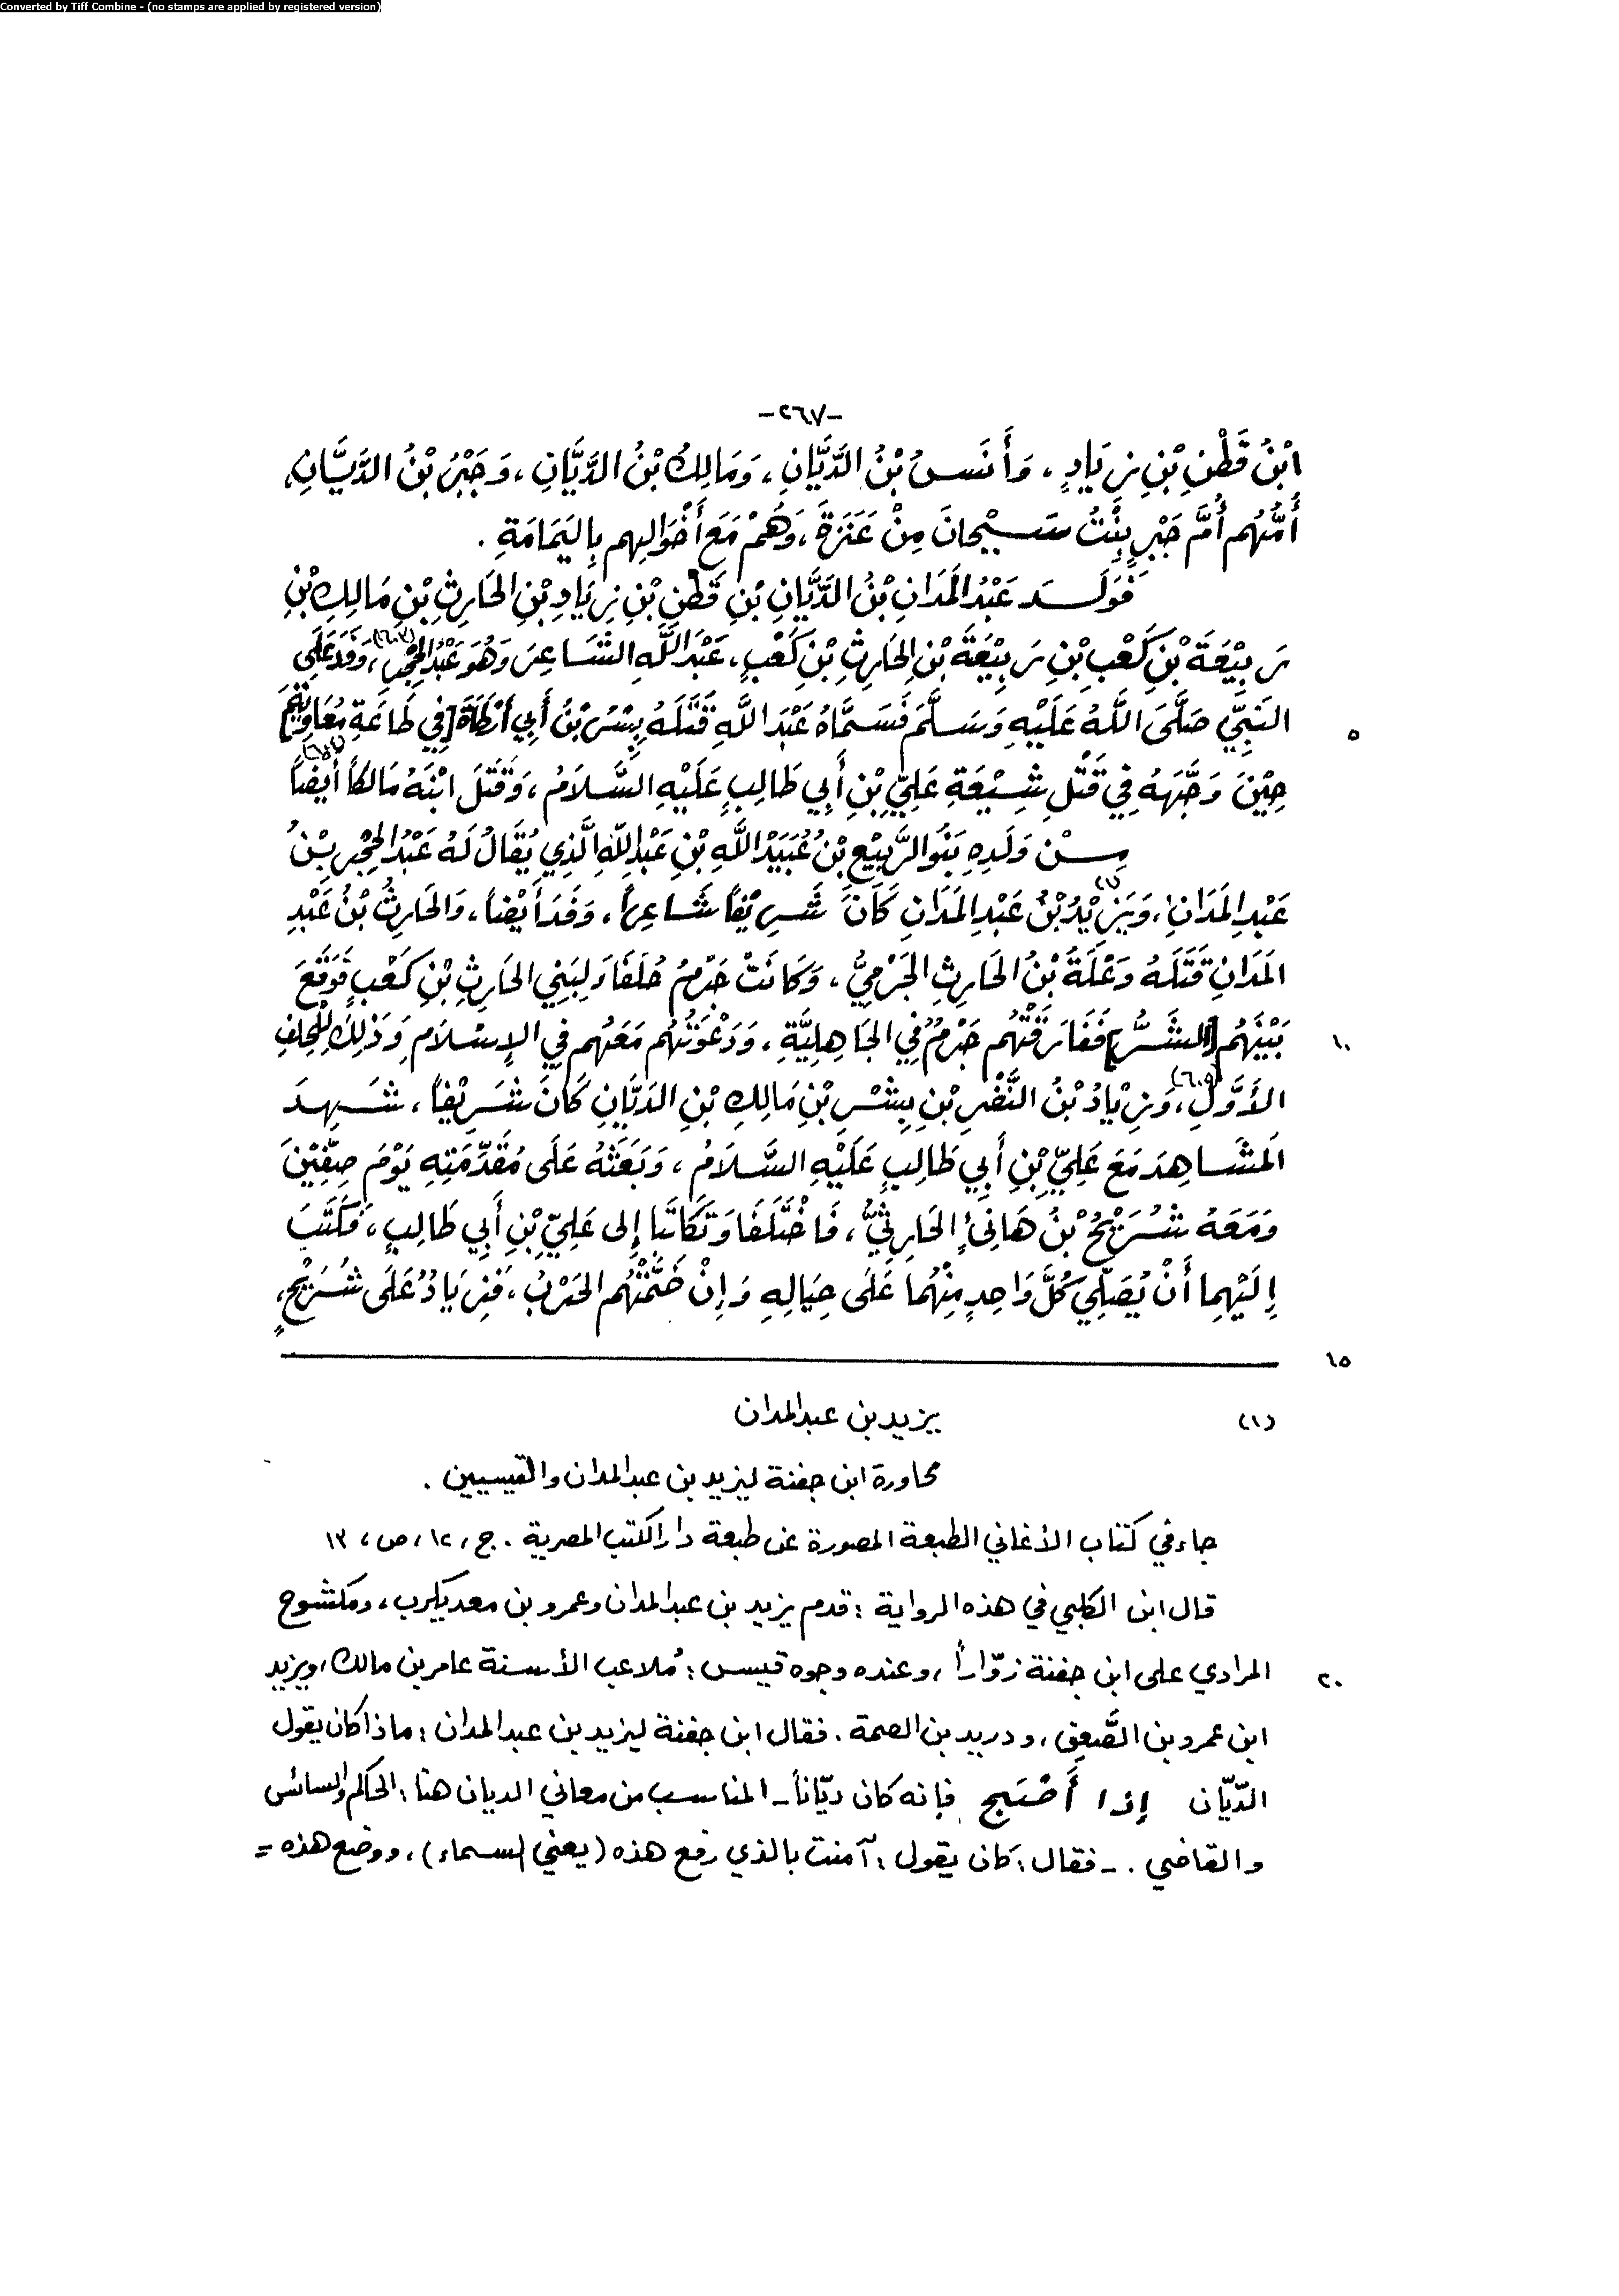 Converted by Tiff Combine - (no stamps are applied by registered version)
-٢٦٧-
ابْنُ قَطْنِ بْنِ زِيَادٍ، وَأَنَسُ بْنُ الدَّيَّانِ، وَمَالِكُ بْنُ الدَّيَّانِ، وَجَبْرُ بْنُ الدَّيَّانِ،
أُمُّهُم أُمُّ جَبْرٍ بِنْتُ سَيْحَانَ مِنْ عَنَزَةَ، وَهُمْ مَعَ أَخْوَالِهِم بِاليَمَامَةِ.
فَوَلَدَ عَبْدُ المَدَانِ بْنُ الدَّيَّانِ بْنِ قَطْنِ بْنِ زِيَادِ بْنِ الحَارِثِ بْنِ مَالِكِ بْنِ
رَبِيْعَةَ بْنِ كَعْبِ بْنِ رَبِيْعَةَ بْنِ الحَارِثِ بْنِ كَعْبٍ، عَبْدَ اللَّهِ الشَّاعِرَ وَهُوَ عَبْدُ الحِجْرِ (٦٠٣)، وَفَدَ عَلَى
٥ النَبِيِّ صَلَّى اللَّهُ عَلَيْهِ وَسَلَّمَ فَسَمَّاهُ عَبْدَ اللَّهِ قَتَلَهُ بِسْرُ بْنُ أَبِي أَرْطَأَةَ [فِي طَاعَةِ مُعَاوِيَةَ]
حِيْنَ وَجَّهَهُ فِي قَتْلِ شِيْعَةِ عَلِيِّ بْنِ أَبِي طَالِبٍ عَلَيْهِ السَّلَامُ، وَقَتَلَ ابْنَهُ مَالِكاً أَيْضاً (٦٠٤)
مِنْ وَلَدِهِ بَنُو الرَّبِيْعِ بْنُ عُبَيْدِ اللَّهِ بْنِ عَبْدِ اللَّهِ الَّذِي يُقَالُ لَهُ عَبْدُ الحِجْرِ بْنُ
عَبْدِ المَدَانِ، وَيَزِيْدُ (١) بْنُ عَبْدِ المَدَانِ كَانَ شَرِيْفاً شَاعِراً، وَفَدَ أَيْضاً، وَالحَارِثُ بْنُ عَبْدِ
المَدَانِ قَتَلَهُ وَعْلَةُ بْنُ الحَارِثِ الجَرْمِيُّ، وَكَانَتْ جَرْمُ حُلَفَاءَ لِبَنِي الحَارِثِ بْنِ كَعْبٍ فَوَقَعَ
١٠ بَيْنَهُم [الشَّرُّ] فَفَارَقَتْهُم جَرْمٌ فِي الجَاهِلِيَّةِ، وَدَعْوَتُهُم مَعَهُم فِي الإِسْلَامِ وَذَلِكَ لِلْحِلْفِ
الأَوَّلِ (٦٠٥)، وَزِيَادُ بْنُ النَّضْرِ بْنِ بِشْرِ بْنِ مَالِكِ بْنِ الدَيَّانِ كَانَ شَرِيْفاً، شَهِدَ
المَشَاهِدَ مَعَ عَلِيِّ بْنِ أَبِي طَالِبٍ عَلَيْهِ السَّلَامُ، وَبَعَثَهُ عَلَى مُقَدِّمَتِهِ يَوْمَ صِفِّيْنَ
وَمَعَهُ شُرَيْحُ بْنُ هَانِئٍ الحَارِثِيُّ، فَاخْتَلَفَا وَتَكَاتَبَا إِلى عَلِيِّ بْنِ أَبِي طَالِبٍ، فَكَتَبَ
إِلَيْهِمَا أَنْ يُصَلِّيَ كُلُّ وَاحِدٍ مِنْهُمَا عَلَى حِيَالِهِ وَإِنْ ضَمَّتْهُم الحَرْبُ، فَزِيَادُ عَلَى شُرَيْحٍ،
١٥
(١) يزيد بن عبد المدان
محاورة ابن جفنة ليزيد بن عبد المدان والقيسيين.
جاء في كتاب الأغاني الطبعة المصورة عن طبعة دار الكتب المصرية. ج، ١٢، ص، ١٣
قال ابن الكلبي في هذه الرواية: قدم يزيد بن عبد المدان وعمرو بن معديكرب، ومكشوح
٢٠ المرادي على ابن جفنة زوّاراً، وعنده وجوه قيس: مُلاعب الأسنة عامر بن مالك، ويزيد
ابن عمرو بن الصَّعِق، ودريد بن الصمة. فقال ابن جفنة ليزيد بن عبد المدان: ماذا كان يقول
الدّيّان إذا أَصْبَح فإنه كان ديّاناً - المناسب من معاني الديان هنا: الحاكم والسائس
والقاضي. - فقال: كان يقول: آمنت بالذي رفع هذه (يعني السماء)، ووضع هذه =